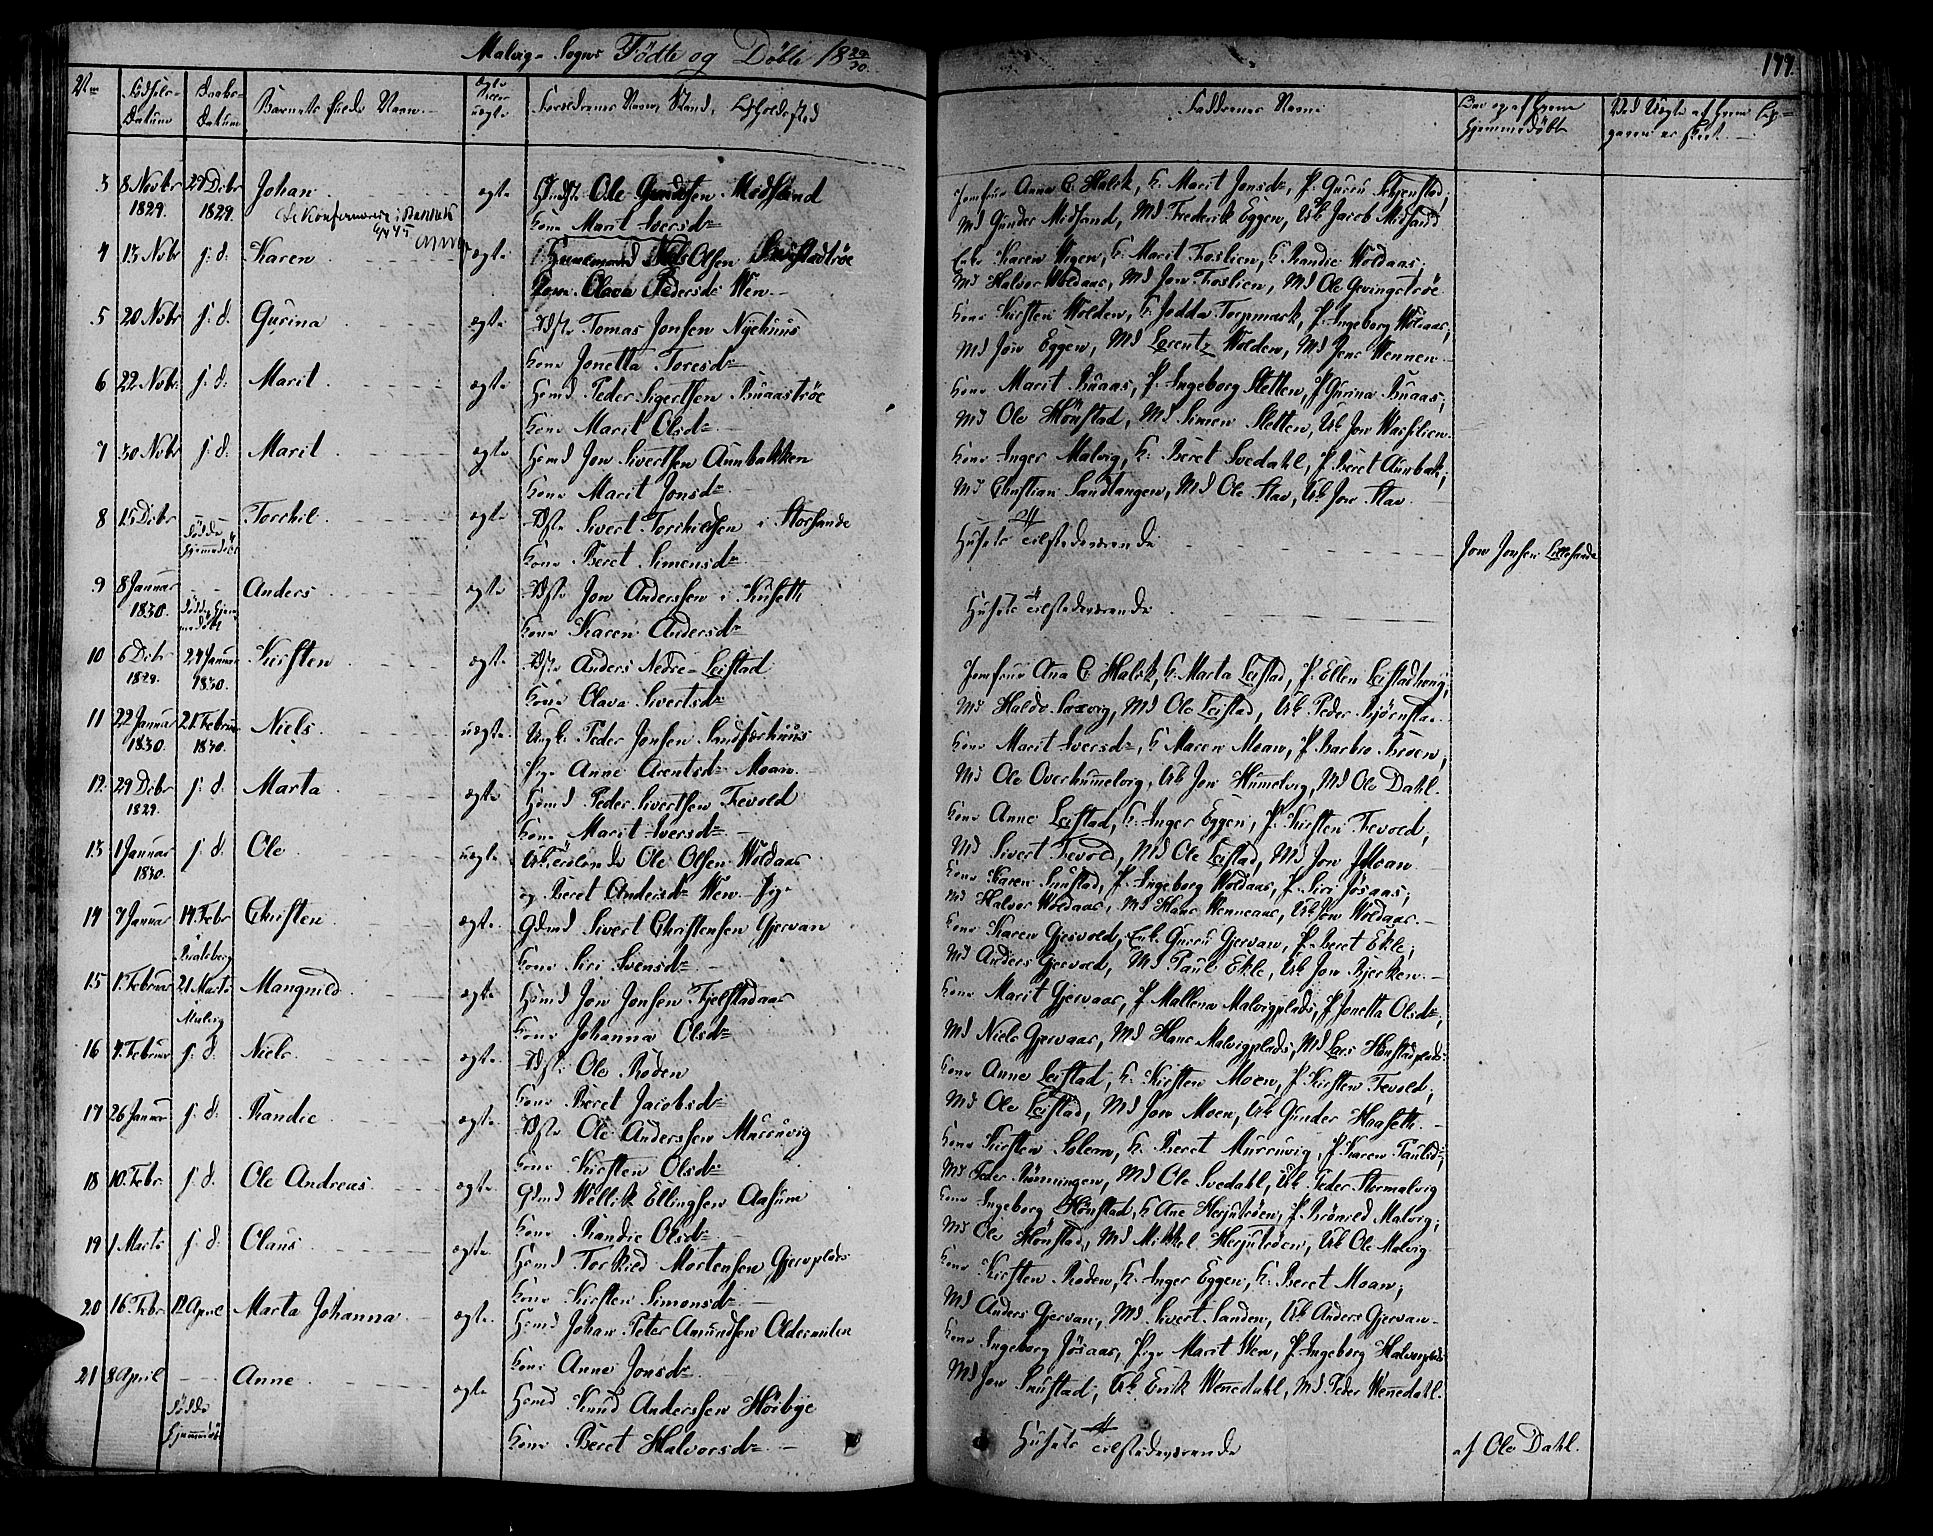 Malvig Sogns Fødte og Døbte 18 29/30.
199.
No | Fødsels-Datum | Daabs-Datum | Barnets fulde Navn | ægte eller uægte | Forældrenes Navn, Stand, Opholdssted | Faddrenes Navne | Hvo og af hvem hjemmedøbt
3 | 8 Novbr 1829. | 27 Debr 1829. | Johan | ægte | Ole Midsand
Kone Marit Iversdr | Jomfrue Anna C. Halck, K. Marit Jonsdr, P. Gurru
Md Gunder Midsand, Md Frederik Eggen, Uk Jacob Midsand
4 | 15 Nvbr | s: d: | Karen | ægte | Nils Olsen
Kone Olava Pedersdr Wen | Karen Wigen, K. Marit Toslien, K. Randie Woldaas;
Md Halvor Woldaas, Md Jon Toslien, Md Ole Gevingstrøe
5 | 20 Nvbr | s: d: | Gurina | ægte | Tomas Jonsen Nyehuus
Kone Jonetta Toresdr | Kone Kirsten Wolden, K. Jodda Torpmark, P. Ingeborg Woldaas;
Md Jon Eggen, Md Lorentz Wolden, Md Jens Wennen
6 | 22 Nvbr | s: d: | Marit | ægte | Hsmd Peder Sigertsen Buaastrøe
Kone Marit Olsdr | Kone Marit Buaas, P. Ingeborg Sletten, P. Gurina Buaas;
Md Ole Hønstad, Md Simen Sletten, Uk Jon Wasslien
7 | 30 Nvbr | s: d: | Marit | ægte | Hsmd Jon Sivertsen Aunbakken
Kone Marit Jonsdr | Kone Inger Malvig, K. Beret Svedahl, P. Beret Aunbak;
Md Christian Sandtangen, Md Ole Stav, Uk Jon Stav
8 | 15 Debr | Døde hjemmedøbt | Torchil | ægte | Sivert Torchildsen i Storsande
Kone Beret Simensdr | Husets tilstedeværende | Jon Jonsen Lillesande
9 | 8 Januar 1830. | Døde hjemmedøbt | Anders | ægte | Jon Anderssen i Kuseth
Kone Karen Andersdr | Husets tilstedeværende
10 | 6 Debr 1829. | 24 Januar 1830. | Kirsten | ægte | Anders Nedre-Leistad
Kone Olava Sivertsdr | Jomfrue Ana C Halck, K. Marta Leistad, P. Ellen Leistadhoug;
Md Haldo Saxvig, Md Ole Leistad, Uk Peder Bjørnstad
11 | 22 Januar 1830. | 21 Februar 1830. | Niels | uægte | Ungk. Peder Jonsen Sandfærhuus
Pige Anne Arentsdr Moan | Kone Marit Iversdr, K Maren Moan, P. Barbro Broen;
Md Ole Overhummelvig, Uk Jon Hummelvig, Md Ole Dahl.
12 | 29 Debr 1829. | s: d: | Marta | ægte | Hsmd Peder Sivertsen Tevold
Kone Marit Iversdr | Kone Anne Leistad, K. Inger Eggen, P. Kirsten Tevold;
Md Sivert Tevold, Md Ole Leistad, Md Jon Moan
13 | 1 Januar 1830. | s: d: | Ole | uægte | Ole Olsen Woldaas
og Beret Andersdr Wen Pige | Kone Karen Snustad, P. Ingeborg Woldaas, P. Siri Jøsaas;
Md Halvor Woldaas, Md Hans Wenneaas, Uk Jon Woldaas.
14 | 7 Januar | 14 Febr Bratsberg | Christen | ægte | Gdmd Sivert Christensen Gjervan
Kone Siri Svensdr | Kone Karen Gjesvold, Enk. Gurru Gjervan, P. Beret Ekle;
Md Anders Gjervold, Md Paul Ekle, Uk Jon Bjerken
15 | 1. Februar | 21 Marts Malvig | Mangnild | ægte | Hsmd Jon Jonsen Fjelstadaas
Kone Johanna Olsdr | Kone Marit Gjervaas, P. Mallena Malvigplads, P Jonetta Olsdr;
Md Niels Gjervaas, Md Hans Malvigplads, Md Lars Hønstadplads
16 | 4. Februar | s: d: | Niels | ægte | Ole Roden
Kone Beret Jacobsdr | Kone Anne Leistad, K. Kirsten Moen, P. Kirsten Tevold;
Md Ole Leistad, Md Jon Moen, Uk Gunder Haaseth
17 | 26 Januar | s: d: | Randie | ægte | Ole Anderssen Murruvig
Kone Kirsten Olsdr | Kone Kirsten Solem, K. Beret Murruvig, P Karen Paulsdr;
Md Peder Rønningen, Md Ole Svedahl, Uk Peder Stormalvig
18 | 10. Febr. | s: d: | Ole Andreas | ægte | Gdmd Wellik Ellingsen Aasum
Kone Randie Olsdr | Kone Ingeborg Hønstad, K Ane Herjutrøen, P. Brønild Malvig;
Md Ole Hønstad, Md Mikkel Herjutrøen, Uk Ole Malvig
19 | 1 Marts | s: d: | Olaus | ægte | Hsmd Torkild Mortensen Gjervplads
Kone Kirsten Simonsdr | Kone Kirsten Roden, K. Inger Eggen, K. Beret Moan;
Md Anders Gjervan, Md Sivert Sanden, Uk Anders Gjervan
20 | 16. Febr | 12 April | Marta Johanna | ægte | Hsmd Johan Peter Amundsen Oldermelen
Kone Anne Jonsdr | Kone Ingeborg Jøsaas, Pige Marit Wen, P. Ingeborg Halvorplads
Md Jon Snustad, Uk Enrik Wenedahl, Md Peder Wenedahl.
21 | 8 April | Døde Hjemmedøbt | Anne | ægte | Hsmd Knud Anderssen Høibye
Kone Beret Halvorsdr | Husets tilstedeværende | af Ole Dahl.